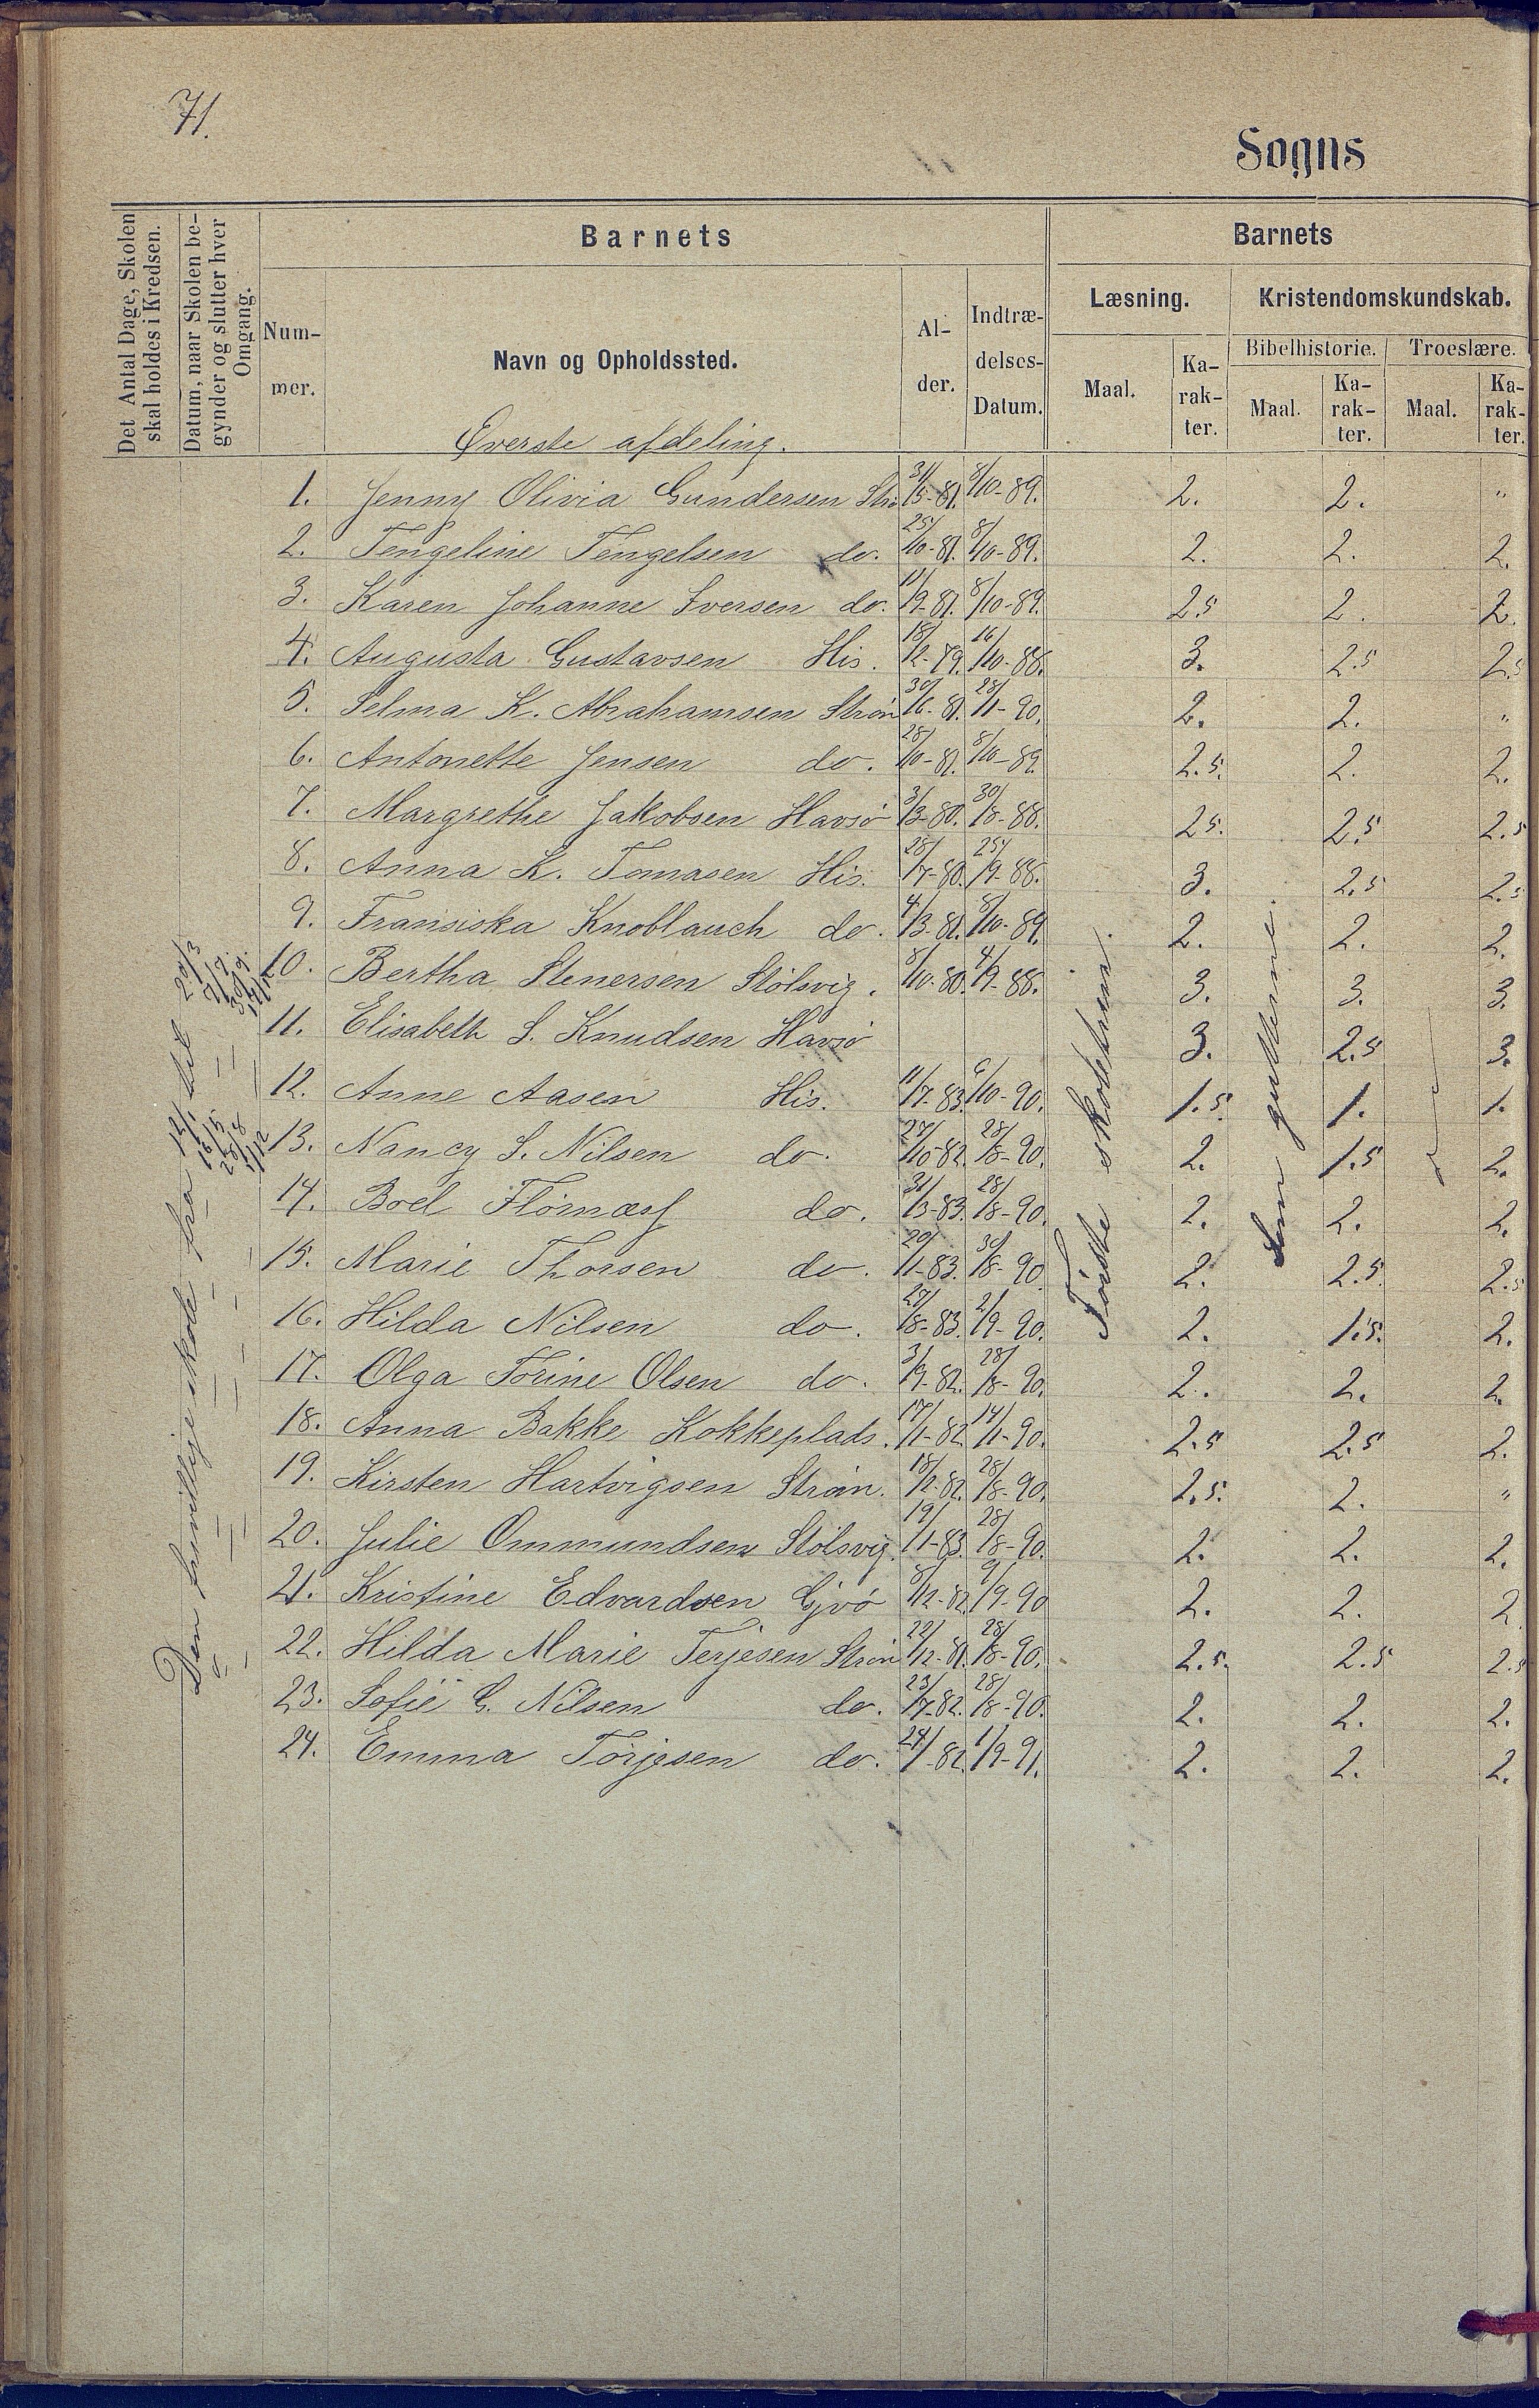 71.
Sogns
Det Antal Dage, Skolen
skal holdes i Kredsen.
Datum, naar Skolen be-
gynder og slutter hver
Omgang.
Barnets
Num-
mer.
Navn og Opholdssted.
Al-
der.
Indtræ-
delses-
Datum.
Barnets
Læsning.
Kristendomskundskab.
Maal.
Ka-
rak-
ter.
Bibelhistorie.
Troeslære.
Maal.
Ka-
rak-
ter.
Maal.
Ka-
rak-
ter.
Øverste afdeling.
1. Jenny Olivia Gundersen Strø 31/5-81. 8/10-89. 2. 2. "
2. Tengeline Tengelsen do. 25/10-81. 8/10-89. 2. 2. 2.
3. Karen Johanne Iversen do. 11/9-81. 8/10-89. 2.5 2. 2.
4. Augusta Gustavsen His. 18/12-79. 16/10-88. 3. 2.5 2.5
5. Selma K. Abrahamsen Strøm 30/6-81. 28/1-90. 2. 2. "
6. Antonette Jensen do. 28/10-81. 8/10-89. 2.5. 2. 2.
7. Margrethe Jakobsen Havsø 3/3-80. 30/8-88. 2.5. 2.5 2.5
8. Anna K. Tomasen His. 28/7-80. 25/9-88. 3. 2.5 2.5
9. Fransiska Knoblauch do. 4/3-81. 8/10-89. 2. 2. 2.
10. Bertha Stenersen Stølsvig. 8/10-80. 4/9-88. 3. 3. 3.
11. Elisabeth S. Knudsen Havsø 3. 2.5 3.
12. Anne Aasen His. 11/7-83. 6/10-90. 1.5. 1. 1.
13. Nancy S. Nilsen do. 27/10-82. 28/8-90. 2. 1.5 2.
14. Boel do. 31/3-83. 28/8-90. 2. 2. 2.
15. Marie Thorsen do. 20/1-83. 30/8-90. 2. 2.5. 2.5
16. Hilda Nilsen do. 27/8-83. 2/9-90. 2. 1.5. 2.
17. Olga Torine Olsen do. 3/9-82. 28/8-90. 2. 2. 2.
18. Anna Bakke Kokkeplads. 17/1-82. 14/1-90. 2.5 2.5 2.
19. Kirsten Hartvigsen Strøm. 18/2-82. 28/8-90. 2.5. 2. "
20. Julie Ommundsen Stølsvig. 19/1-83. 28/8-90. 2. 2. 2.
21. Kristine Edvardsen Gjvø 8/12-82. 9/9-90 2. 2. 2.
22. Hilda Marie Terjesen Strøm 22/12-81. 28/8-90. 2.5. 2.5 2.5
23. Sofie G. Nilsen do. 23/7-82. 28/8-90. 2. 2. 2.
24. Emma Torjesen do. 24/ -82. 1/9-91. 2. 2. 2.
Den frivillige skole fra 12/1 til 20/3
Første skoletrin.
Som gutterne.